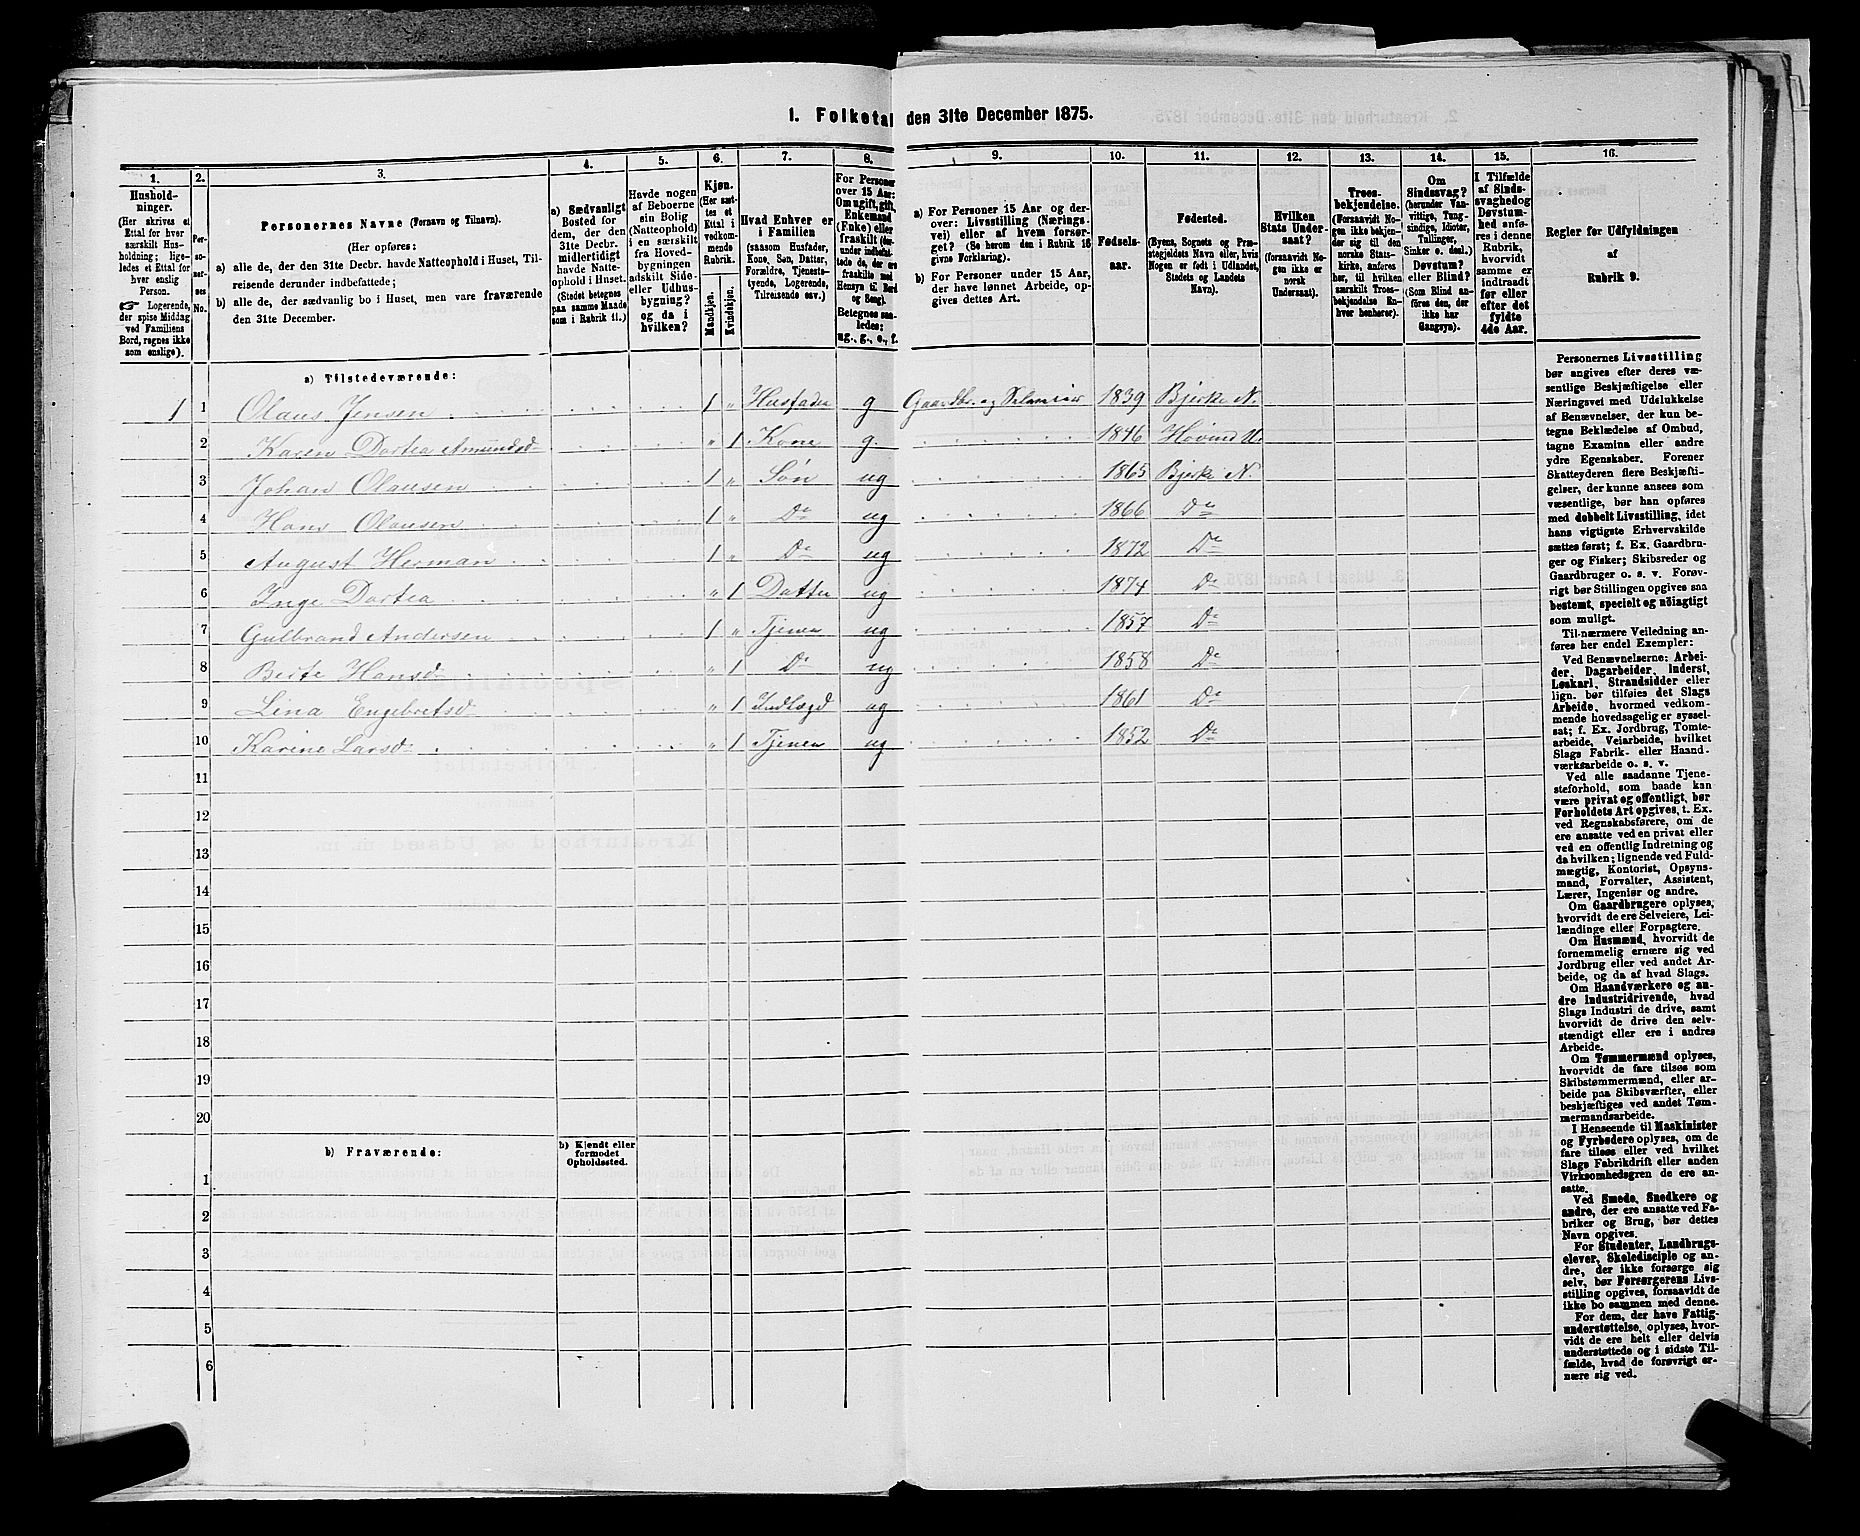 1. Folketal den 31te December 1875.
1.
2.
3.
4.
5.
6.
7.
8.
9.
10.
11.
12.
13.
14.
15.
16.
Hushold-
ninger.
(Her skrives et
Ettal for hver
særskilt Hus-
holdning; lige-
ledes et Ettal for
hver enslig
Person.
☞ Logerende,
der spise Middag
ved Familiens
Bord, regnes ikke
som enslige).
Per-
so-
ner-
nes
No.
Personernes Navne (Fornavn og Tilnavn).
(Her opføres:
a) alle de, der den 31te Decbr. havde Natteophold i Huset, Til-
reisende derunder indbefattede;
b) alle de, der sædvanlig bo i Huset, men vare fraværende
den 31te December.
a) Sædvanligt
Bosted for
dem, der den
31te Decbr.
midlertidigt
havde Natte-
ophold i Huset.
(Stedet betegnes
paa samme Maade
som i Rubrik 11.)
Havde nogen
af Beboerne
sin Bolig
(Natteophold)
i en særskilt
fra Hoved-
bygningen
adskilt Side-
eller Udhus-
bygning?
og da i
hvilken?
Kjøn.
(Her sæt-
tes et
Ettal i
vedkom-
mende
Rubrik.
Mandkjøn.
Kvindekjøn.
Hvad Enhver er
i Familien
(saasom Husfader,
Kone, Søn, Datter,
Forældre, Tjeneste-
tyende, Logerende,
Tilreisende osv.)
For Personer
over 15 Aar:
Om ugift, gift,
Enkemand
(Enke) eller
fraskilt (der-
under indbefat-
tede de, der ere
fraskilte med
Hensyn til Bord
og Seng).
Betegnes saa-
ledes:
ug., g., e., f.
a) For Personer 15 Aar og der-
over: Livsstilling (Nærings-
vei) eller af hvem forsør-
get? (Se herom den i Rubrik 16
givne Forklaring).
b) For Personer under 15 Aar,
der have lønnet Arbeide, op-
gives dettes Art.
Fødsels-
aar.
Fødested.
(Byens, Sognets og Præ-
stegjeldets Navn eller, hvis
Nogen er født i Udlandet,
Stedets og Landets
Navn).
Hvilken
Stats Under-
saat?
(forsaavidt No-
gen ikke er
norsk
Undersaat).
Troes-
bekjendelse.
(Forsaavidt No-
gen ikke bekjen-
der sig til den
norske Stats-
kirke, anføres
her, til hvilken
særskilt Troes-
bekjendelse En-
hver henhører).
Om
Sindssvag?
(herunder Van-
vittige, Tung-
sindige, Idioter,
Tullinger,
Sinker o. desl.)
Døvstum?
eller Blind?
(Som Blind an-
føres den, der
ikke har
Gangsyn).
I Tilfælde
af Sinds-
svaghed og
Døvstum-
hed anfø-
res i denne
Rubrik,
hvorvidt
samme er
indtraadt
før eller
efter det
fyldte
4de Aar.
Regler for Udfyldningen
af
Rubrik 9.
a) Tilstedeværende:
1 1 Olaus Jensen 1 „ Husfader g Gaardbr. og Selveier 1839 Bjerke N.
2 Karen Dortea Amundsd „ 1 Kone g. 1846 Hovind U.
3 Johan Olausen 1 „ Søn ug 1865 Bjerke N.
4 Hans Olausen 1 „ Do ug 1866 Do
5 August Herman 1 „ Do ug 1872 Do
6 Inge Dortea „ 1 Datter ug 1874 Do
7 Gulbrand Andersen 1 „ Tjener ug 1857 Do
8 Berte Hansd „ 1 Do ug 1858 Do
9 Lina Engebretsd „ 1 Indlagd ug 1861 Do
10 Karine Larsd „ 1 Tjener ug 1852 Do
11
12
13
14
15
16
17
18
19
20
b) Fraværende:
b) Kjendt eller
formodet
Opholdssted.
1
2
3
4
5
6
Personernes Livsstilling
bør angives efter deres væ-
sentlige Beskjæftigelse eller
Næringsvei med Udelukkelse
af Benævnelser, der kun be-
tegne Beklædelse af Ombud,
tagne Examina eller andre
ydre Egenskaber. Forener
Skatteyderen flere Beskjæfti-
gelser, der kunne ansees som
væsentlige, bør han opføres
med dobbelt Livsstilling, idet
hans vigtigste Erhvervskilde
sættes først; f. Ex. Gaardbru-
ger og Fisker; Skibsreder og
Gaardbruger o. s. v. Forøv-
rigt bør Stillingen opgives saa
bestemt, specielt og nøiagtigt
som muligt.
Til nærmere Veiledning an-
føres her endel Exempler:
Ved Benævnelserne: Arbei-
der, Dagarbeider, Inderst,
Løskarl, Strandsidder eller
lign. bør tilføies det Slags
Arbeide, hvormed vedkom-
mende hovedsagelig er syssel-
sat; f. Ex. Jordbrug, Tomte-
arbeide, Veiarbeide, hvilket
Slags Fabrik- eller Haand-
værksarbeide o. s. v.
Ved alle saadanne Tjene-
steforhold, som baade kan
være privat og offentligt, bør
Forholdets Art opgives, t. Ex.
ved Regnskabsførere, om de
ere ansatte ved en privat eller
ved en offentlig Indretning og
da hvilken; lignende ved Fuld-
mægtig, Kontorist, Opsyns-
mand, Forvalter, Assistent,
Lærer, Ingeniør og andre.
Om Gaardbrugere oplyses,
hvorvidt de ere Selveiere, Lei-
lændinge eller Forpagtere.
Om Husmænd, hvorvidt de
fornemmelig ernære sig ved
Jordbrug eller ved andet Ar-
beide, og da af hvad Slags.
Om Haandværkere og an-
dre Industridrivende, hvad
Slags Industri de drive, samt
hvorvidt de drive den selv-
stændigt eller ere i andres
Arbeide.
Om Tømmermænd oplyses,
hvorvidt de fare tilsøs som
Skibstømmermænd, eller ar-
beide paa Skibsværfter, eller
beskjæftiges ved andet Tøm-
mermandsarbeide.
I Henseende til Maskinister
og Fyrbødere oplyses, om de
fare tilsøs eller ved hvilket
Slags Fabrikdrift eller anden
Virksomhedsgren de ere an-
satte.
Ved Smede, Snedkere og
andre, der ere ansatte ved Fa-
briker og Brug, bør dettes
Navn opgives.
For Studenter, Landbrugs-
elever, Skoledisciple og an-
dre, der ikke forsørge sig
selv, bør Forsørgerens Livs-
stilling opgives, forsaavidt de
ikke bo sammen med denne.
For dem, der have Fattig-
understøttelse, oplyses, hvor-
vidt de ere helt eller delvis
understøttede og i sidste Til-
fælde, hvad de forøvrigt er-
nære sig ved.